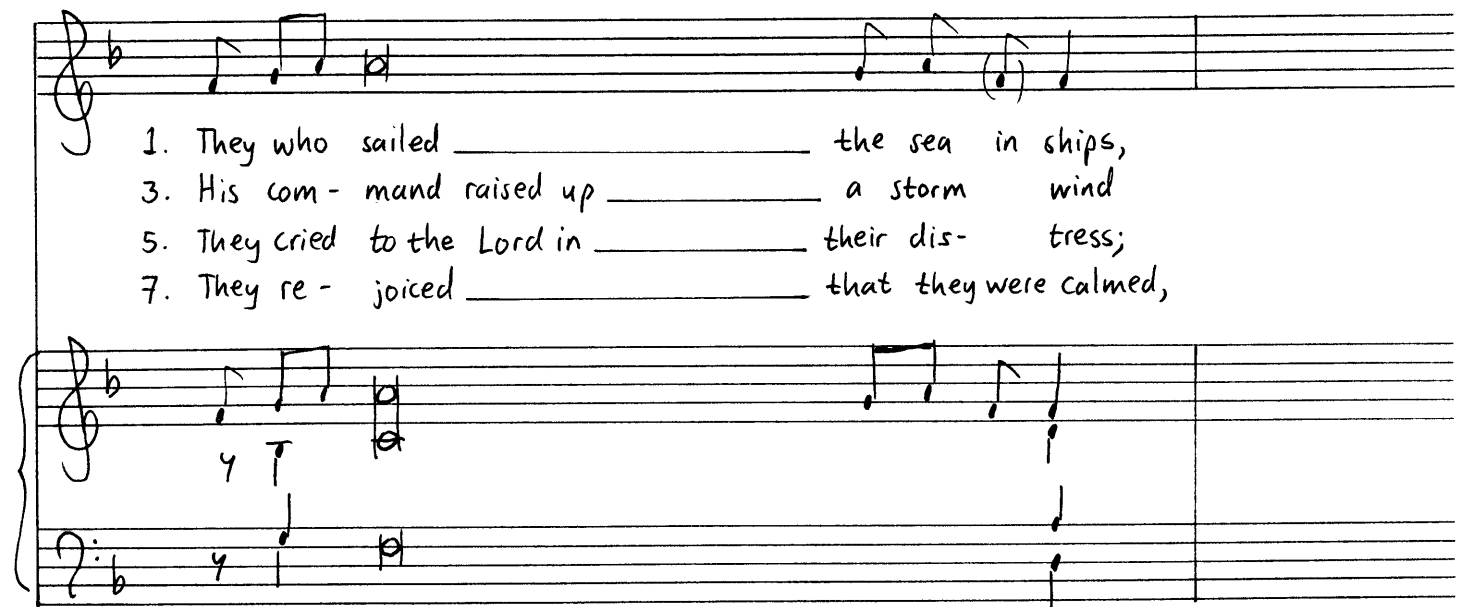 1. They who sailed ____________ the sea in ships,
3. His com - mand raised up ____________ a storm wind
5. They cried to the Lord in ____________ their dis- tress;
7. They re - joiced ____________ that they were calmed,